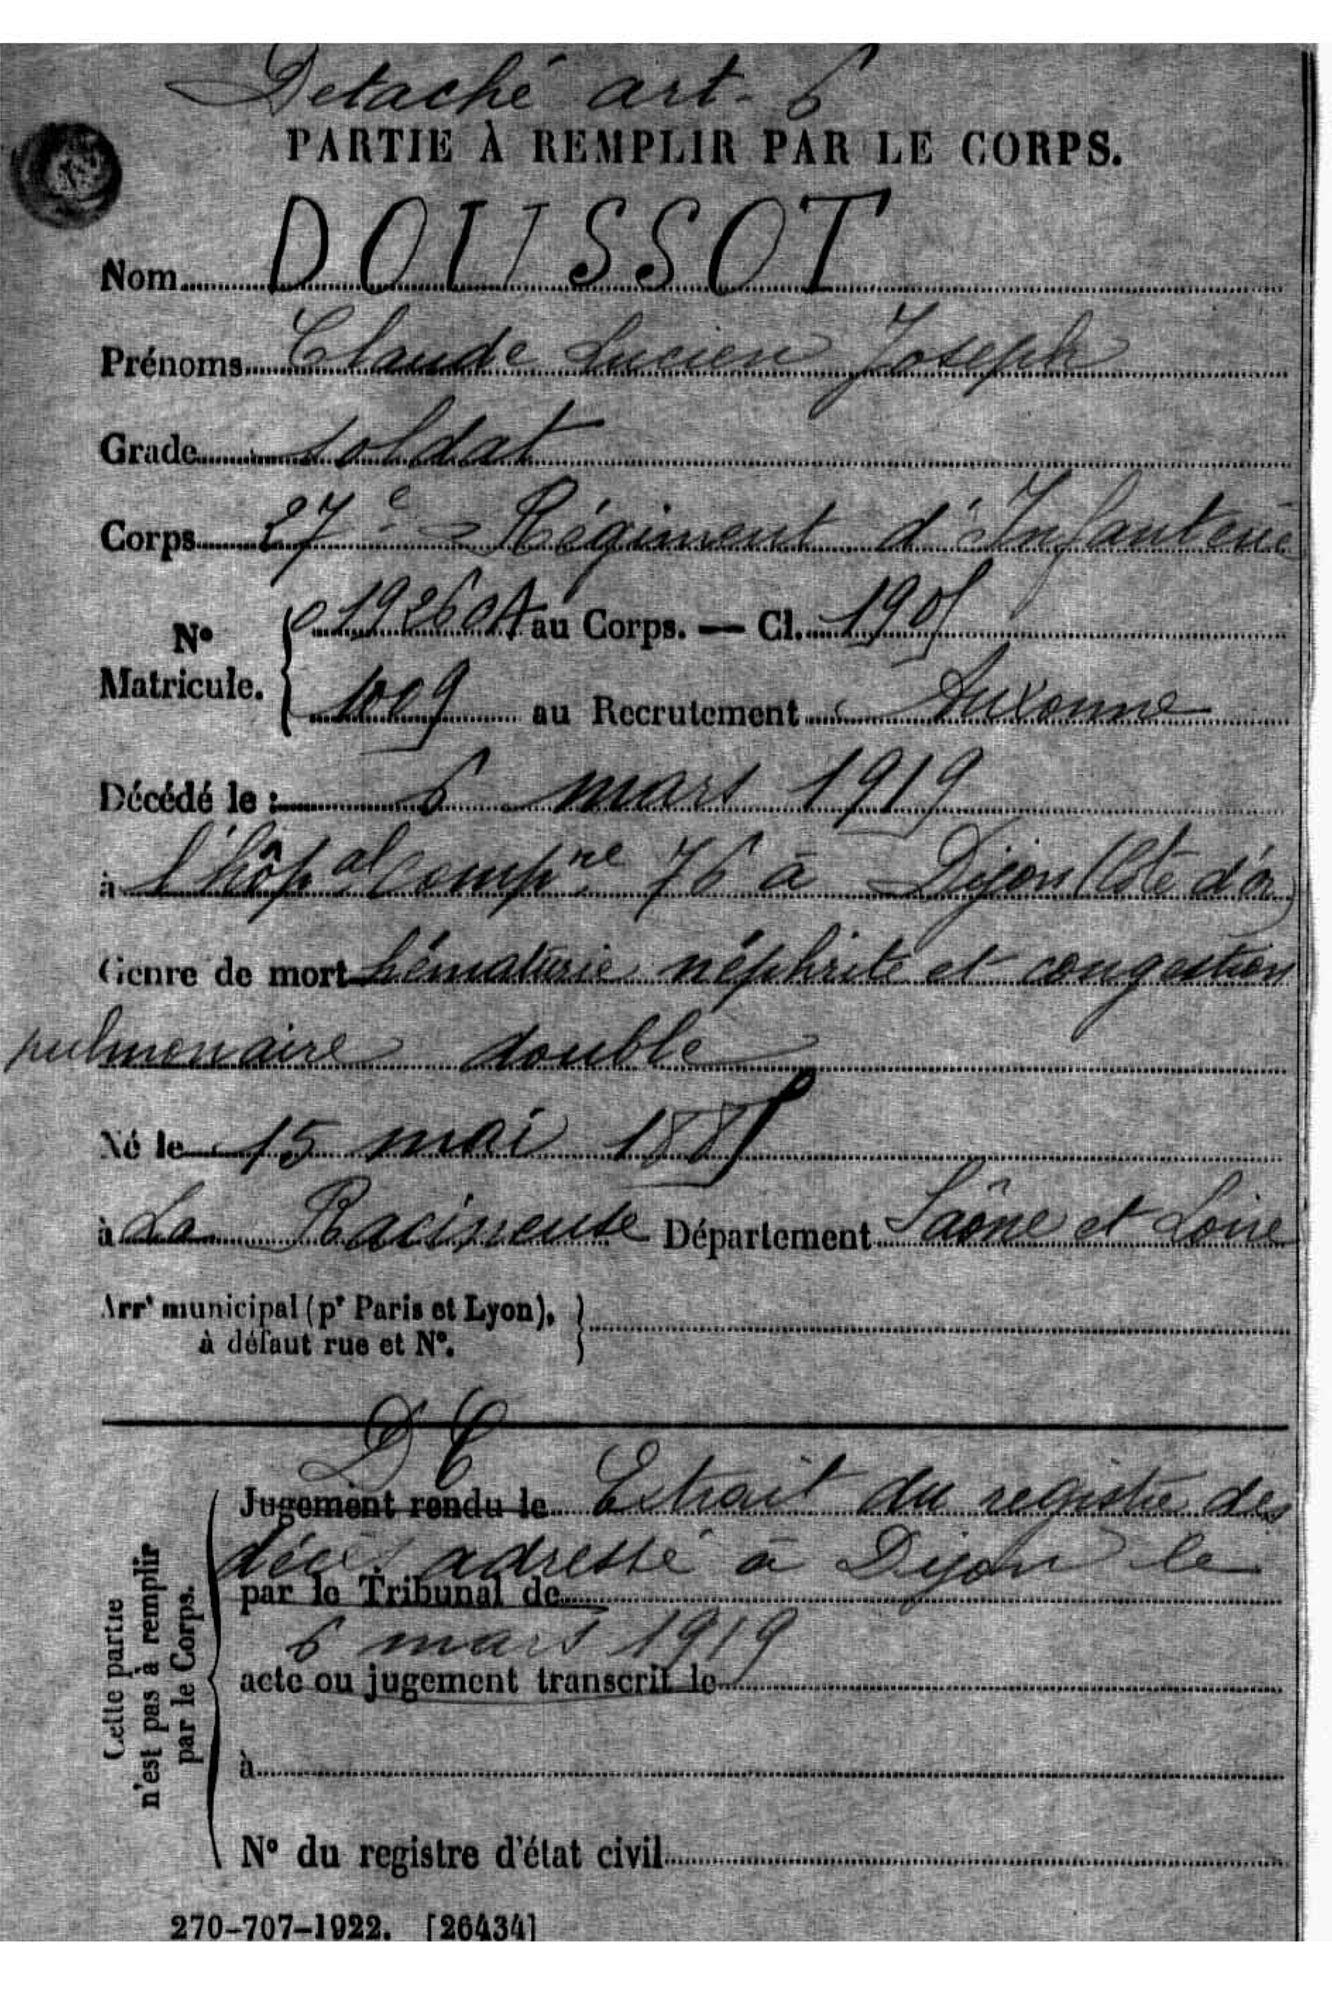 Detaché art. 6
PARTIE À REMPLIR PAR LE CORPS.
Nom DOUSSOT
Prénoms Claude Lucien Joseph
Grade soldat
Corps 27e Régiment d'Infanterie
N° Matricule. 019260A au Corps. — Cl. 1905
1009 au Recrutement Auxonne
Décédé le : 6 mars 1919
à l'hôpal Compre 76 à Dijon (Côte d'or)
Genre de mort hématurie néphrite et congestion
pulmonaire double
Né le 15 mai 1885
à La Racineuse Département Saône et Loire
Arrt municipal (pr Paris et Lyon),
à défaut rue et N°.
DC
Jugement rendu le Extrait du registre des
décès adressé à Dijon le
par le Tribunal de
6 mars 1919
acte ou jugement transcrit le
à
N° du registre d'état civil
Cette partie
n'est pas à remplir
par le Corps.
270-707-1922. [26434]